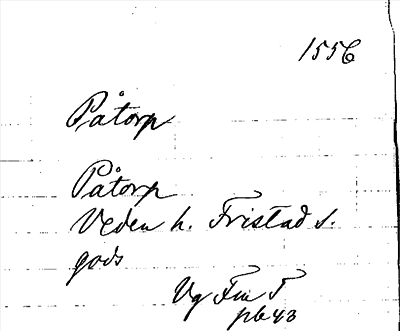 1556
Påtorp
Påtorp
Veden h. Fristad s.
gods
Vg Fru T
pb 43